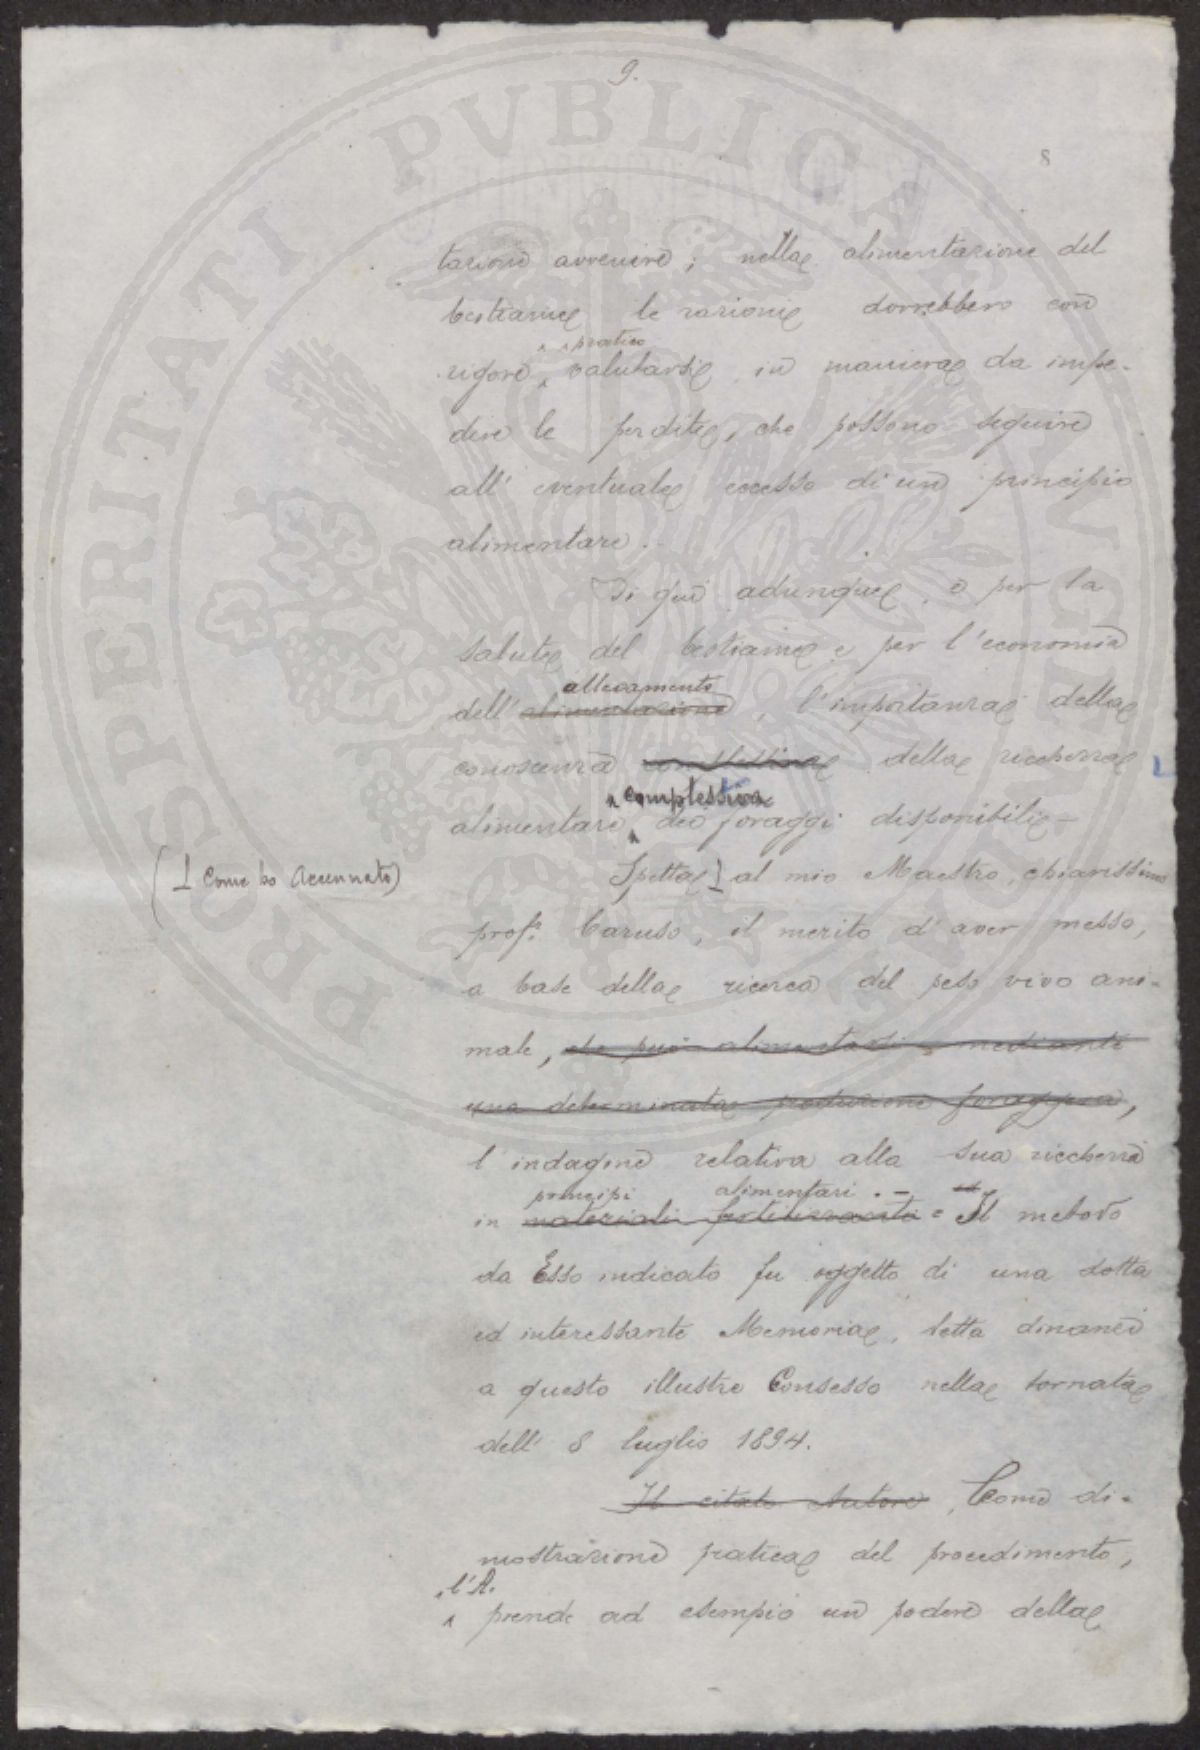 9.
8
tazione avvenire; nella alimentazione del
bestiame le razioni dovrebbero con
pratico
rigore valutarsi in maniera da impe-
dire le perdite, che possono seguire
all' eventuale eccesso di un principio
alimentare.-
Di qui adunque, e per la
salute del bestiame e per l'economia
allevamento
dell' alimentazione, l'importanza della
conoscenza complessiva della ricchezza
complessiva
alimentare dei foraggi disponibili-
(⊥ Come ho accennato)
Spetta ⊥ al mio Maestro, chiarissimo
prof. Caruso, il merito d'aver messo,
a base della ricerca del peso vivo ani-
male, che può alimentarsi mediante
una determinata produzione foraggera,
l'indagine relativa alla sua ricchezza
principi alimentari.-
in materiali fertilizzanti = Il metodo
da Esso indicato fu oggetto di una dotta
ed interessante Memoria, letta dinanzi
a questo illustre Consesso nella tornata
dell' 8 luglio 1894.
Il citato Autore, Come di-
mostrazione pratica del procedimento,
l'A.
prende ad esempio un podere della
PROSPERITATI PVBLICAE AVGENDAE